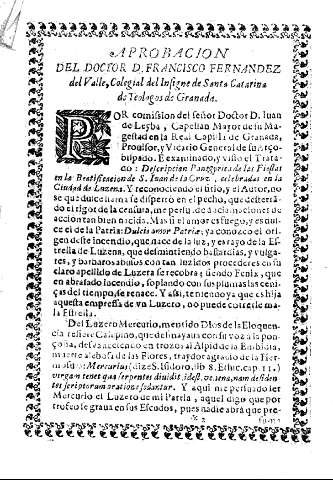 APROBACION
DEL DOCTOR D. FRANCISCO FERNANDEZ
del Valle, Colegial del Insigne de Santa Catarina
de Teologos de Granada.
POR comission del señor Doctor D. Iuan
de Leyba, Capellan Mayor de su Ma-
gestad en la Real Capilla de Granada,
Provisor, y Vicario General de su Arço-
bispado. E examinado, y visto el Trata-
do: Descripcion Panegyrica de las Fiestas
en la Beatificacion de S. Iuan de la Cruz, celebradas en la
Ciudad de Luzena. Y reconociendo el sitio, y el Autor, no
se que dulce llama se dispertò en el pecho, que desterrã-
do el rigor de la censura, me
accion tan bien nacida. Mas si el amor es fuego, y es dul-
ce el de la Patria: Dulcis amor Patriæ; ya conozco el origen
deste incendio, que nace de la luz, y es rayo de la Es-
trella de Luzena, que desmintiendo bastardias, y vulga-
res, y barbaros abusos con tan luzidos procederes en su
claro apellido de Luzera se recobra; siendo Fenix, que
en abrasado incendio, soplando con sus plumas las ceni-
ças del tiempo, se renace. Y assi, teniendo ya que es hija
aquesta empressa de vn Luzero, no puede correrle ma-
la Estrella.
Del Luzero Mercurio, mentido Dios de la Eloquen-
cia refiere Calepino, que desmayaua con su voz a la ponço-
ña, deshaziendo en trozos al Alpid de la Embidia,
muerte alebosa de las Flores, traydor agrauio de la Her-
mosura: Mercurius (dize S. Isidoro, lib. 8. Ethic. cap. 11.)
virgam tenet qua serpentes diuidit, idest, venena, nam disiden-
tes scriptorum oratione sedantur. Y aqui me persuado ser
Mercurio el Luzero de mi Patria, aquel digo que por
trofeo se graua en sus Escudos, pues nadie abrà que pre-
2